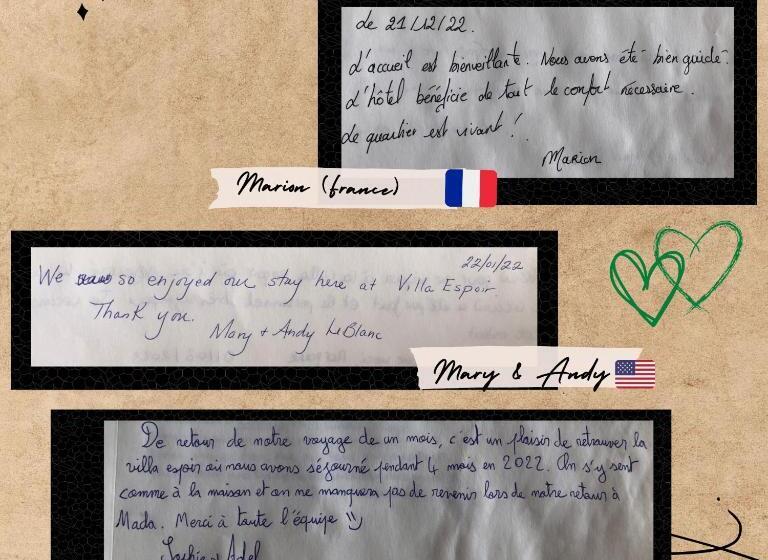 de 21/12/22.
L'accueil est bienveillante. Nous avons été bien guidé.
L'hôtel bénéficie de tout le confort nécessaire.
Le quartier est vivant !
Marion
Marion (france)
22/01/22
We so enjoyed our stay here at Villa Espoir
Thank you.
Mary + Andy LeBlanc
Mary & Andy
De retour de notre voyage de un mois, c'est un plaisir de retrouver la
villa espoir où nous avons séjourné pendant 4 mois en 2022. On s'y sent
comme à la maison et on ne manquera pas de revenir lors de notre retour à
Mada. Merci à toute l'équipe